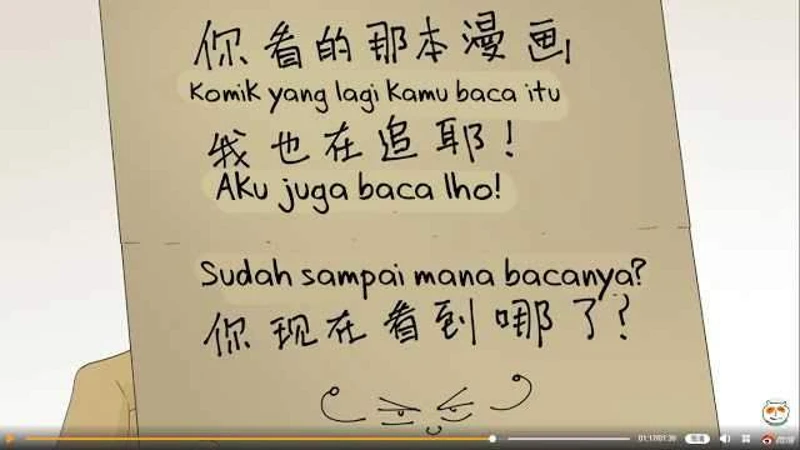 你看的那本漫画
Komik yang lagi kamu baca itu
我也在追耶！
Aku juga baca lho!
Sudah sampai mana bacanya?
你现在看到哪了？
01:17/01:36